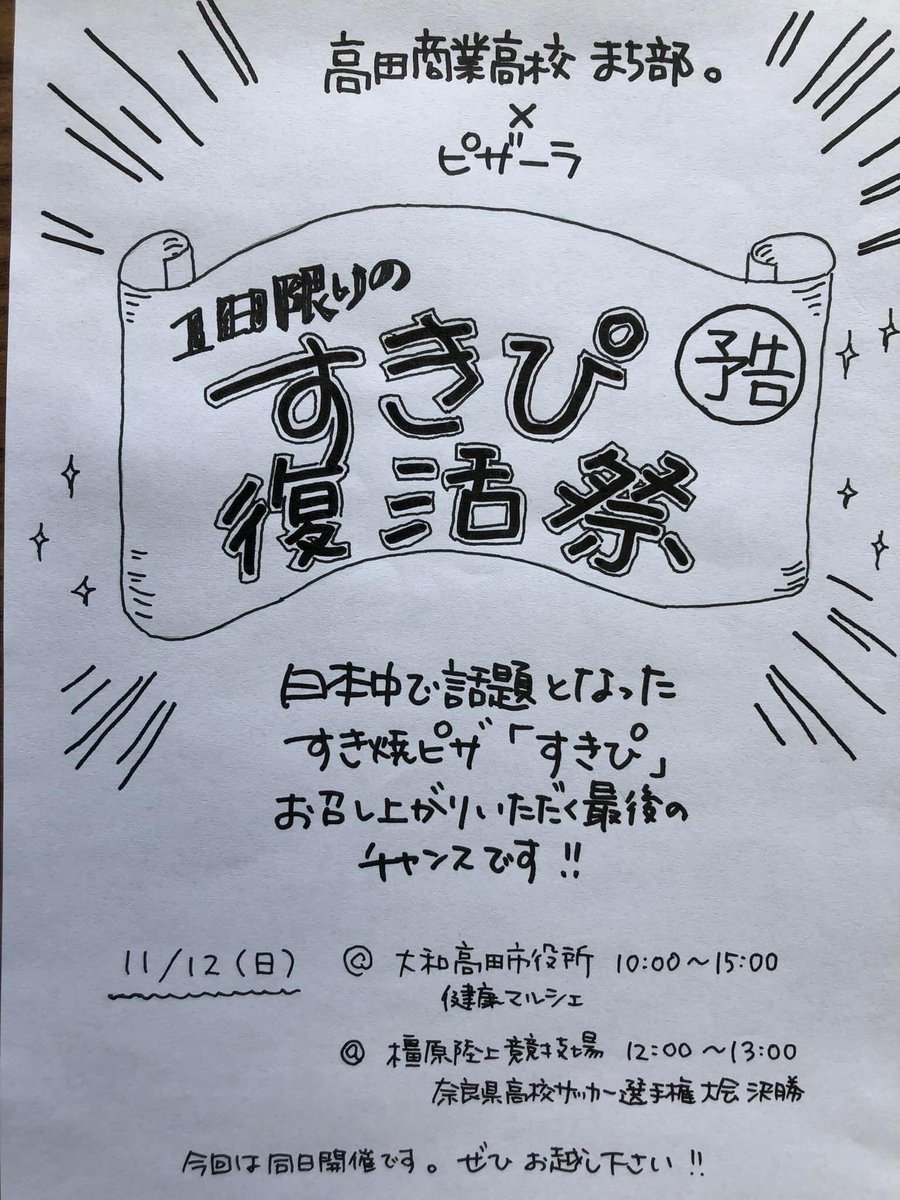 高田商業高校 まち部。
×
ピザーラ
1日限りの
すきぴ
予告
復活祭
日本中で話題となった
すき焼ピザ「すきぴ」
お召し上がりいただく最後の
チャンスです!!
11/12(日) @ 大和高田市役所 10:00~15:00
健康マルシェ
@ 橿原陸上競技場 12:00~13:00
奈良県高校サッカー選手権大会決勝
今回は同日開催です。ぜひお越し下さい!!